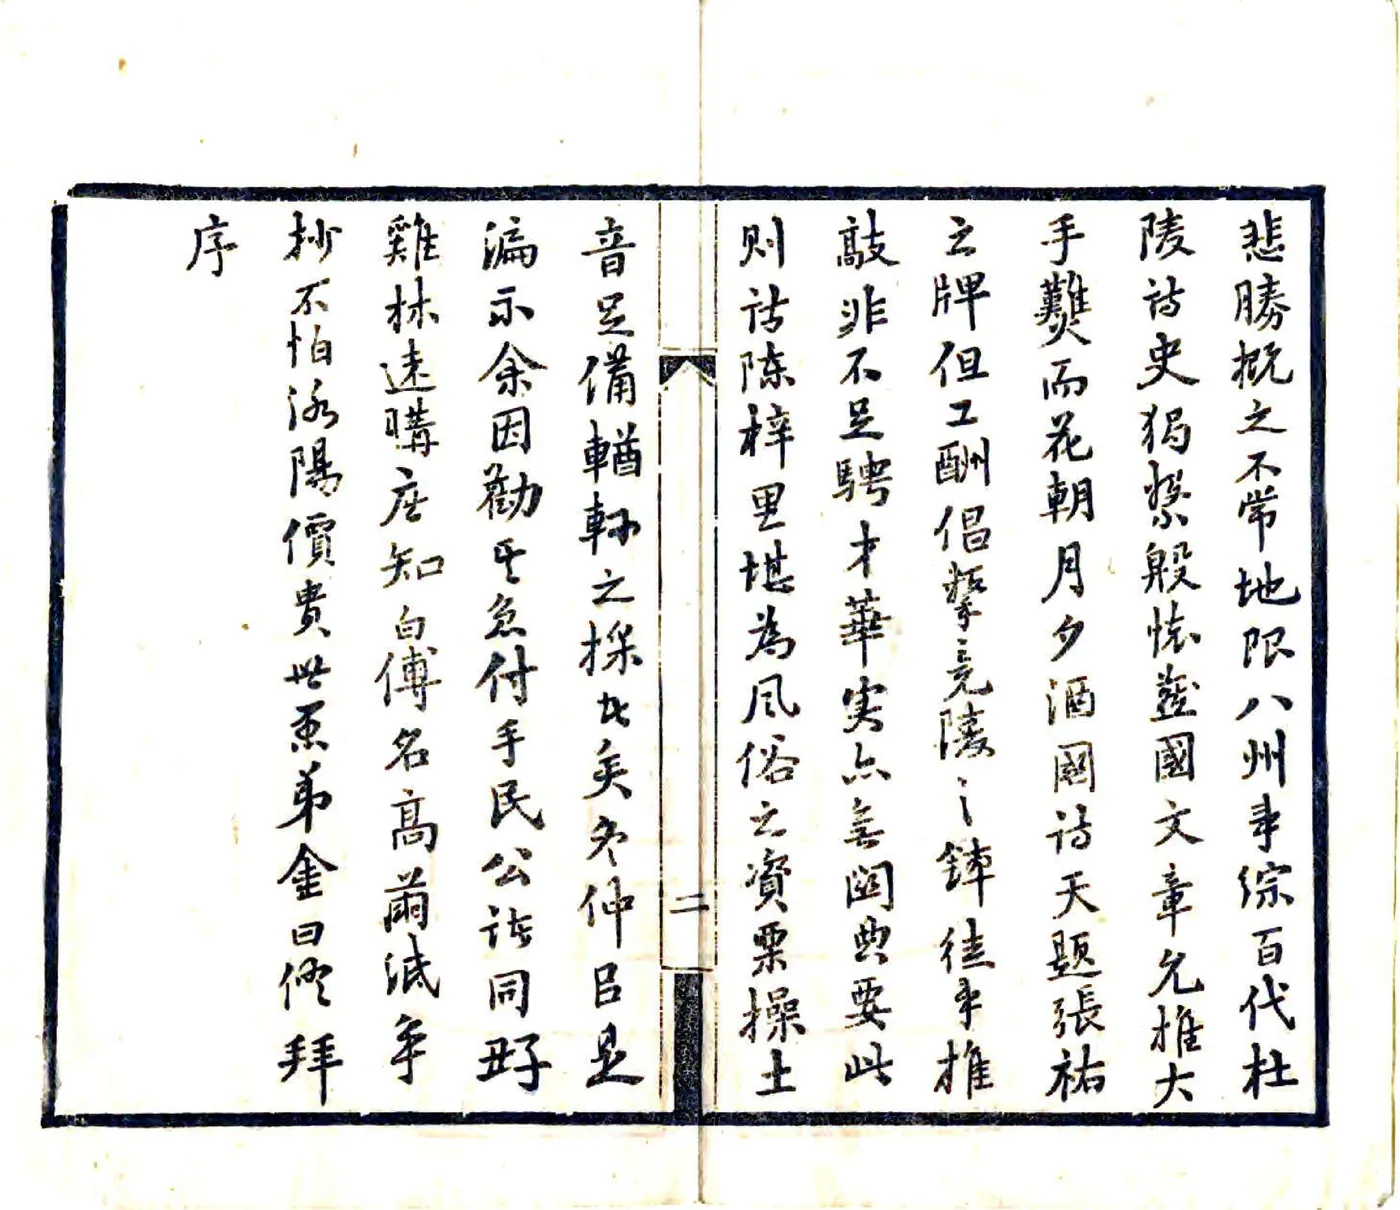 悲勝概之不常地限八州事綜百代杜
陵詩史獨縈般悵盛國文章允推大
手艱難而花朝月夕酒國詩天題張祐
之牌但工酬倡擊竟陵之鉢徒事推
敲非不足騁才華実亦無關典要此
則話陳梓里堪為風俗之資栗操土
音足備輶軒之採此矣冬仲呂是
漏示余因勸其急付手民公諸同好
雞林遠購定知白傅名高蔄減年
抄不怕洛陽價貴世愚弟金曰修拜
序
二